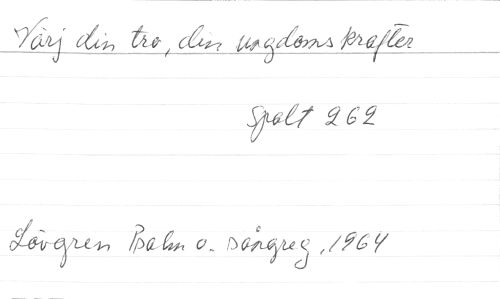 Värj din tro, din ungdoms krafter
spalt 262
Lövgren Psalm o. sångreg, 1964